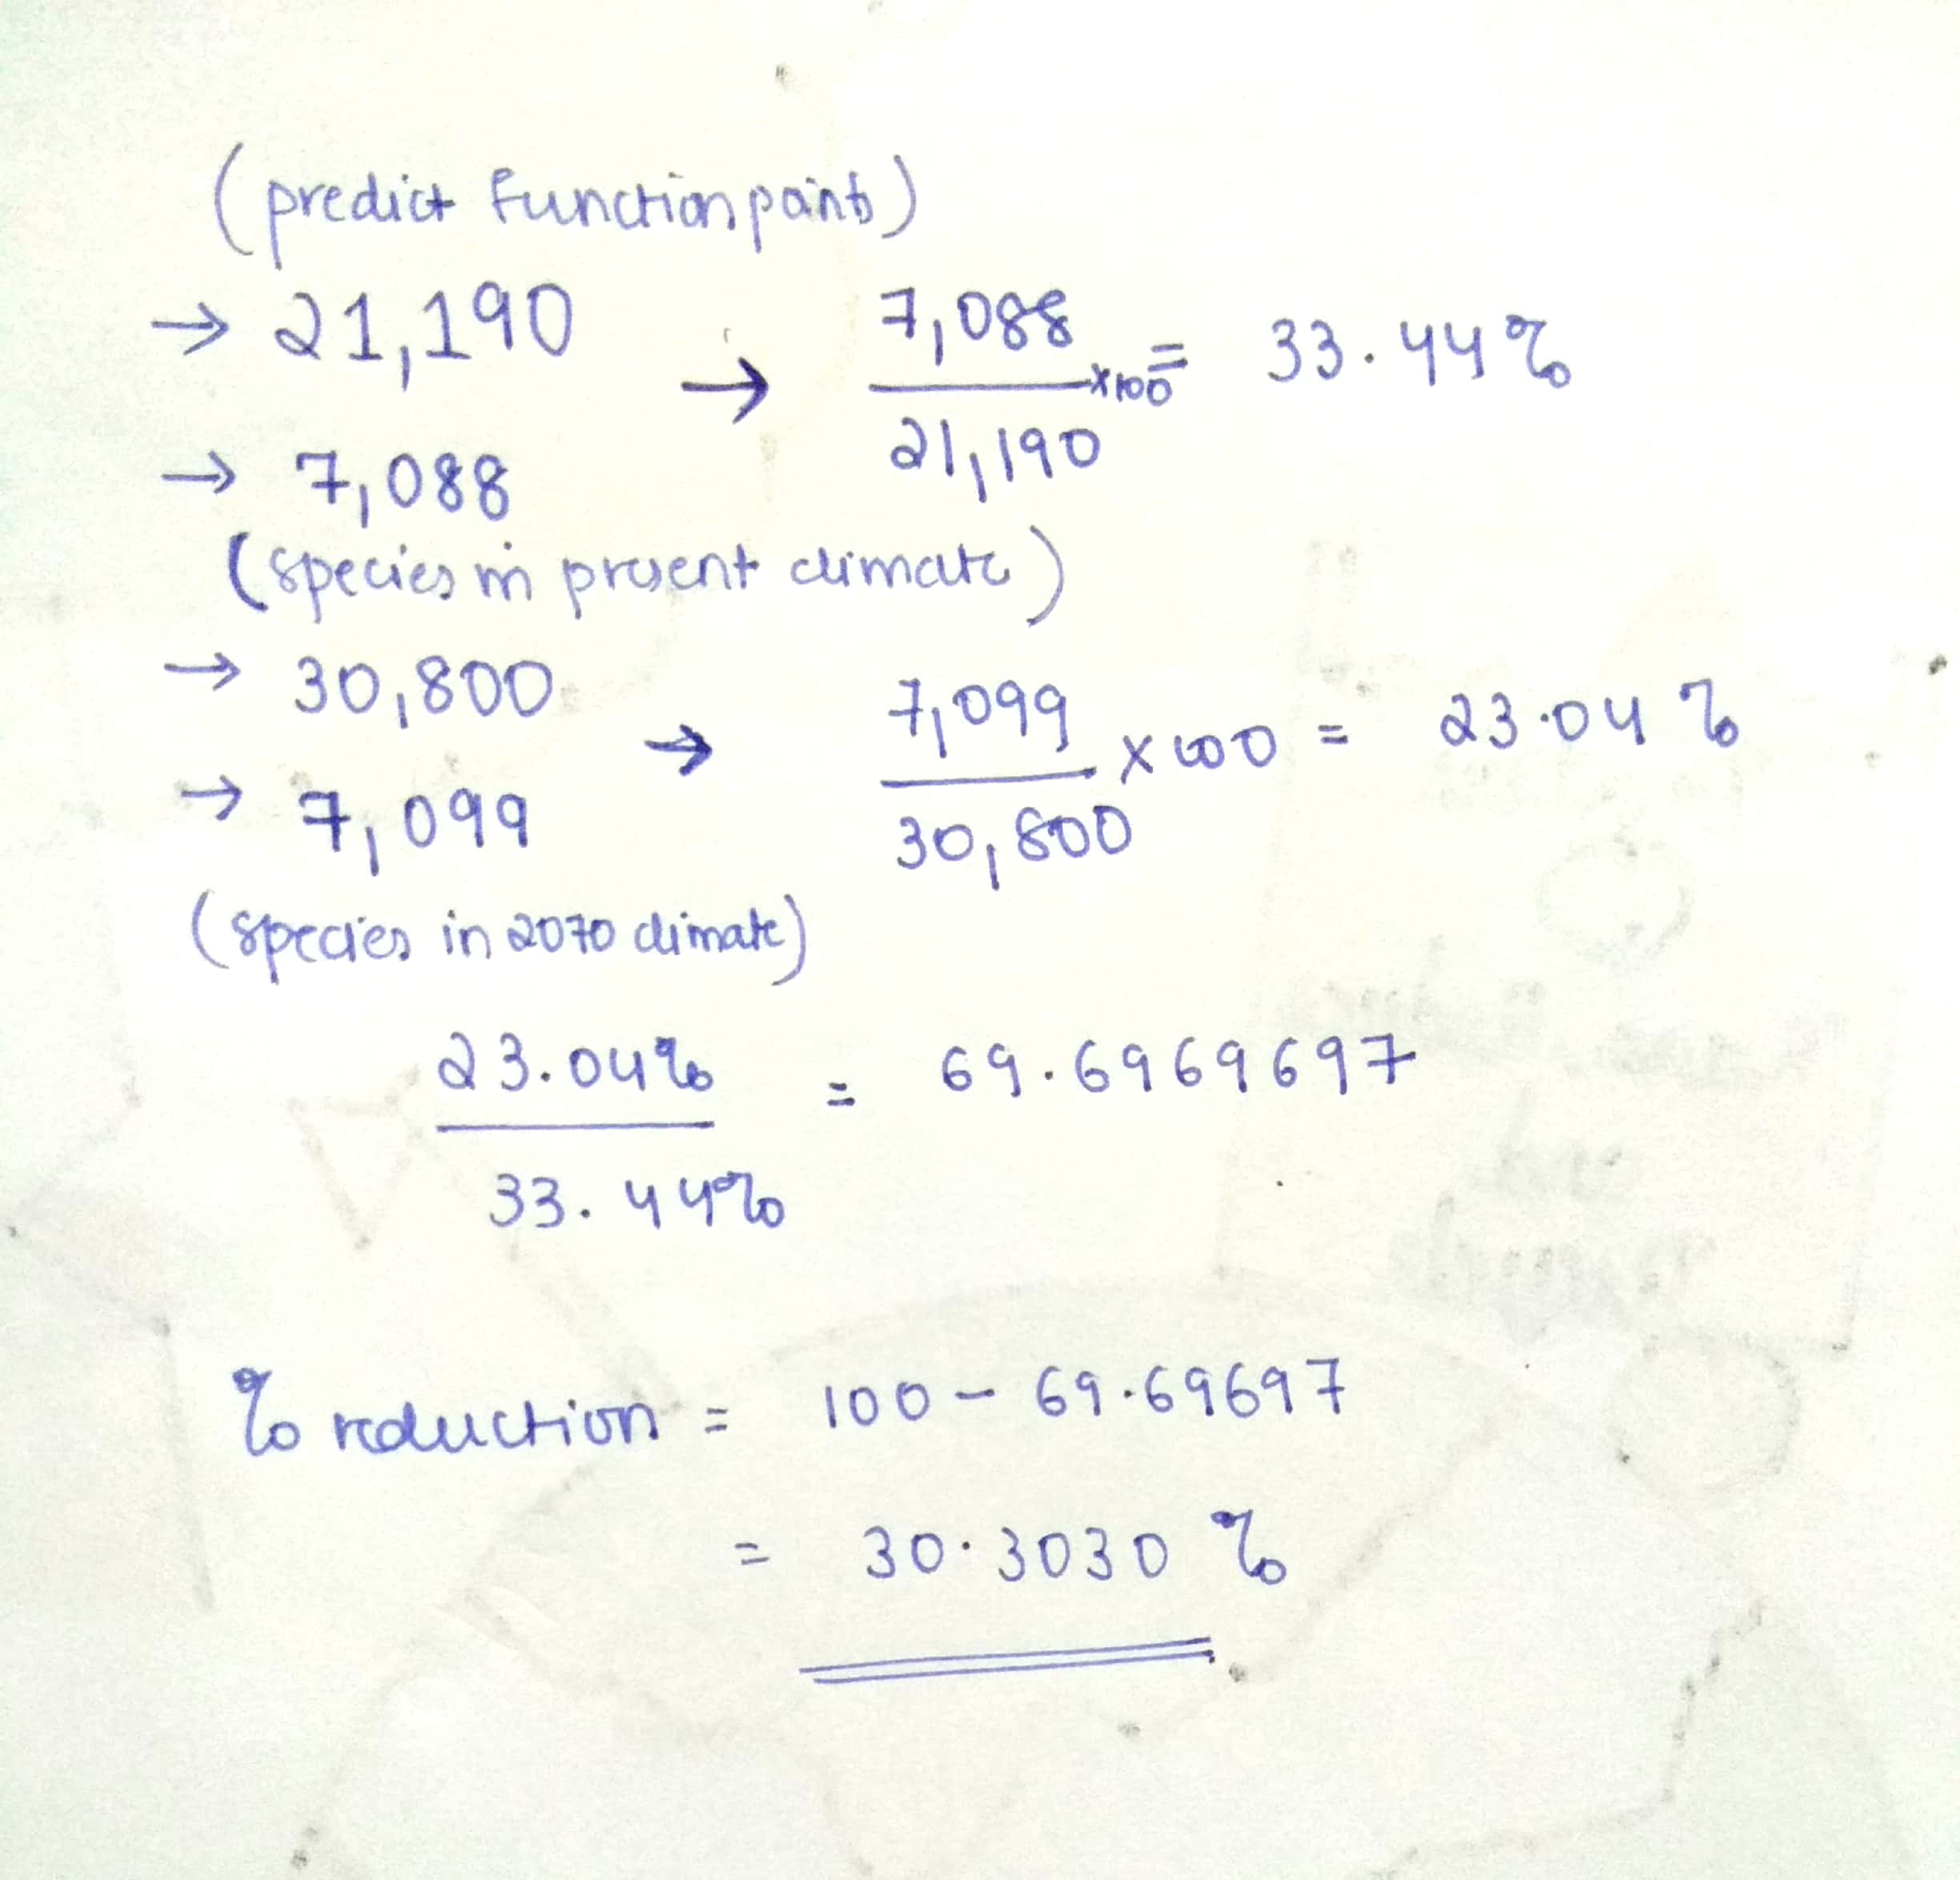 (predict function points)
→ 21,190
→ 7,088
→ 7,088 / 21,190 ×100 = 33.44%
(species in present climate)
→ 30,800
→ 7,099
→ 7,099 / 30,800 × 100 = 23.04 %
(species in 2070 climate)
23.04% / 33.44% = 69.6969697
% reduction = 100 - 69.69697
= 30.3030 %